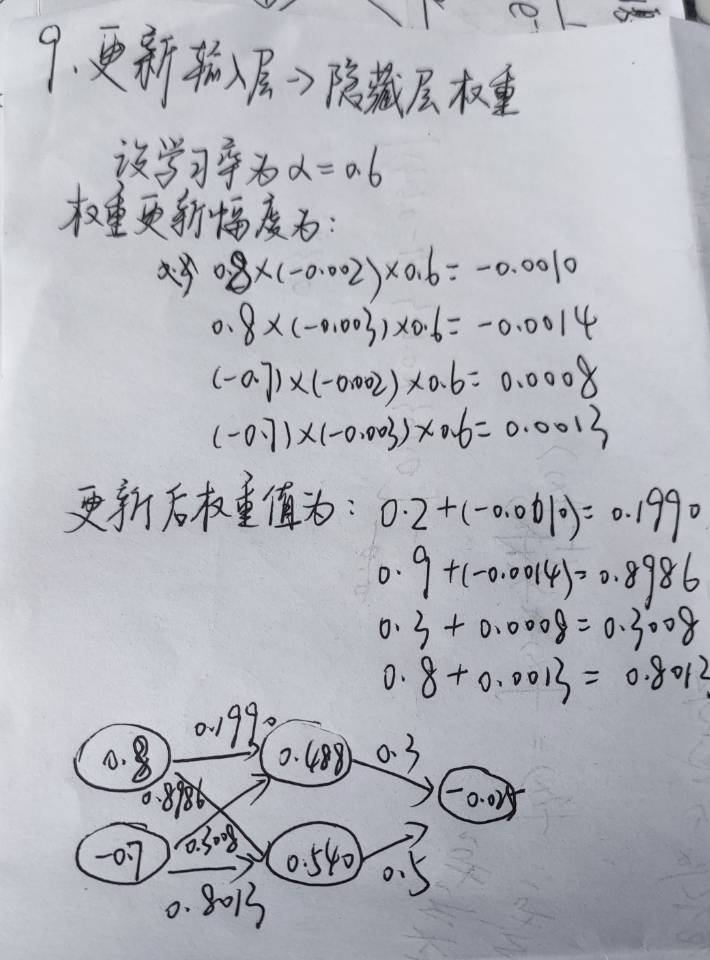 9、更新输入层→隐藏层权重
设学习率为α=0.6
权重更新幅度为:
0.8×(-0.002)×0.6=-0.0010
0.8×(-0.003)×0.6=-0.0014
(-0.7)×(-0.002)×0.6=0.0008
(-0.7)×(-0.003)×0.6=0.0013
更新后权重值为: 0.2+(-0.0010)=0.1990
0.9+(-0.0014)=0.8986
0.3+0.0008=0.3008
0.8+0.0013=0.8013
0.1990
0.8
0.488
0.3
0.8986
-0.025
0.3008
-0.7
0.540
0.5
0.8013